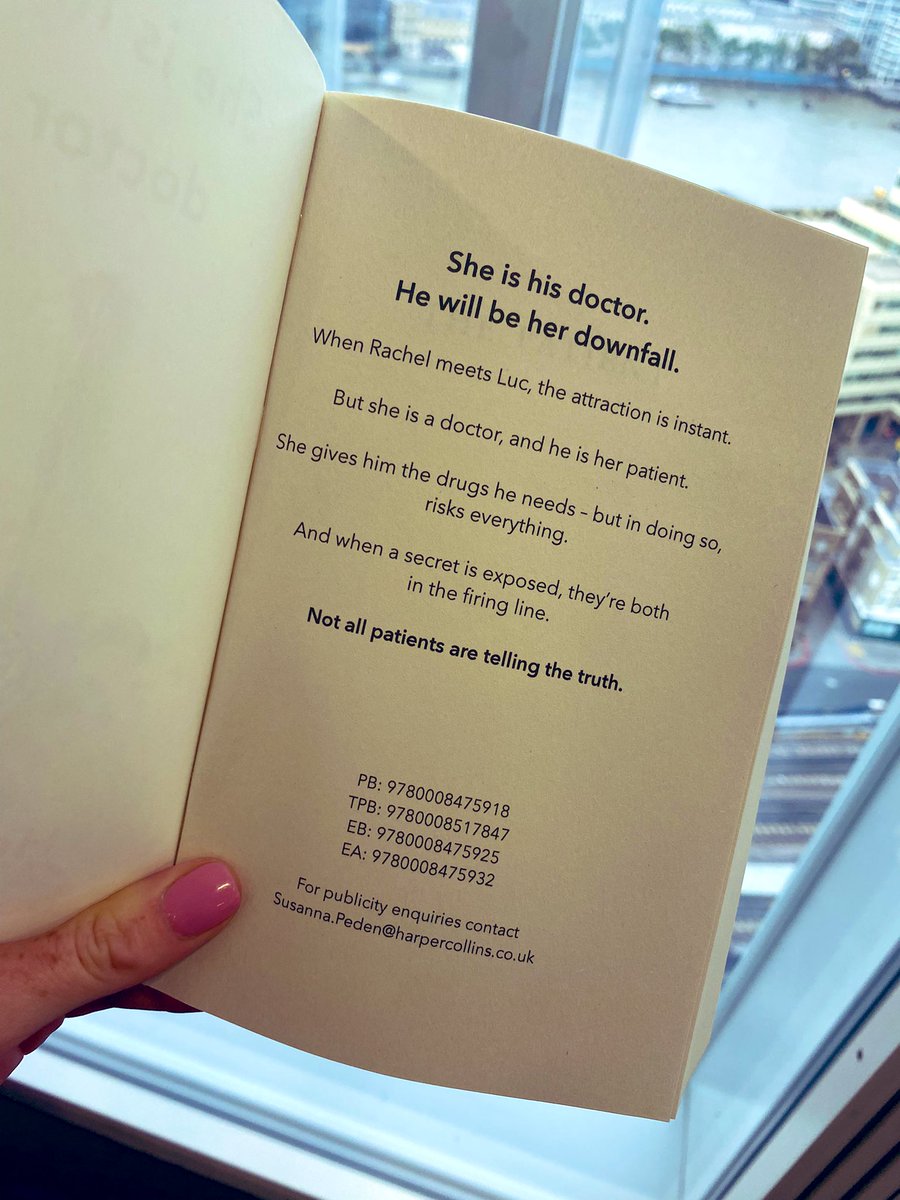 She is his doctor.
He will be her downfall.
When Rachel meets Luc, the attraction is instant.
But she is a doctor, and he is her patient.
She gives him the drugs he needs – but in doing so,
risks everything.
And when a secret is exposed, they're both
in the firing line.
Not all patients are telling the truth.
PB: 9780008475918
TPB: 9780008517847
EB: 9780008475925
EA: 9780008475932
For publicity enquiries contact
Susanna.Peden@harpercollins.co.uk